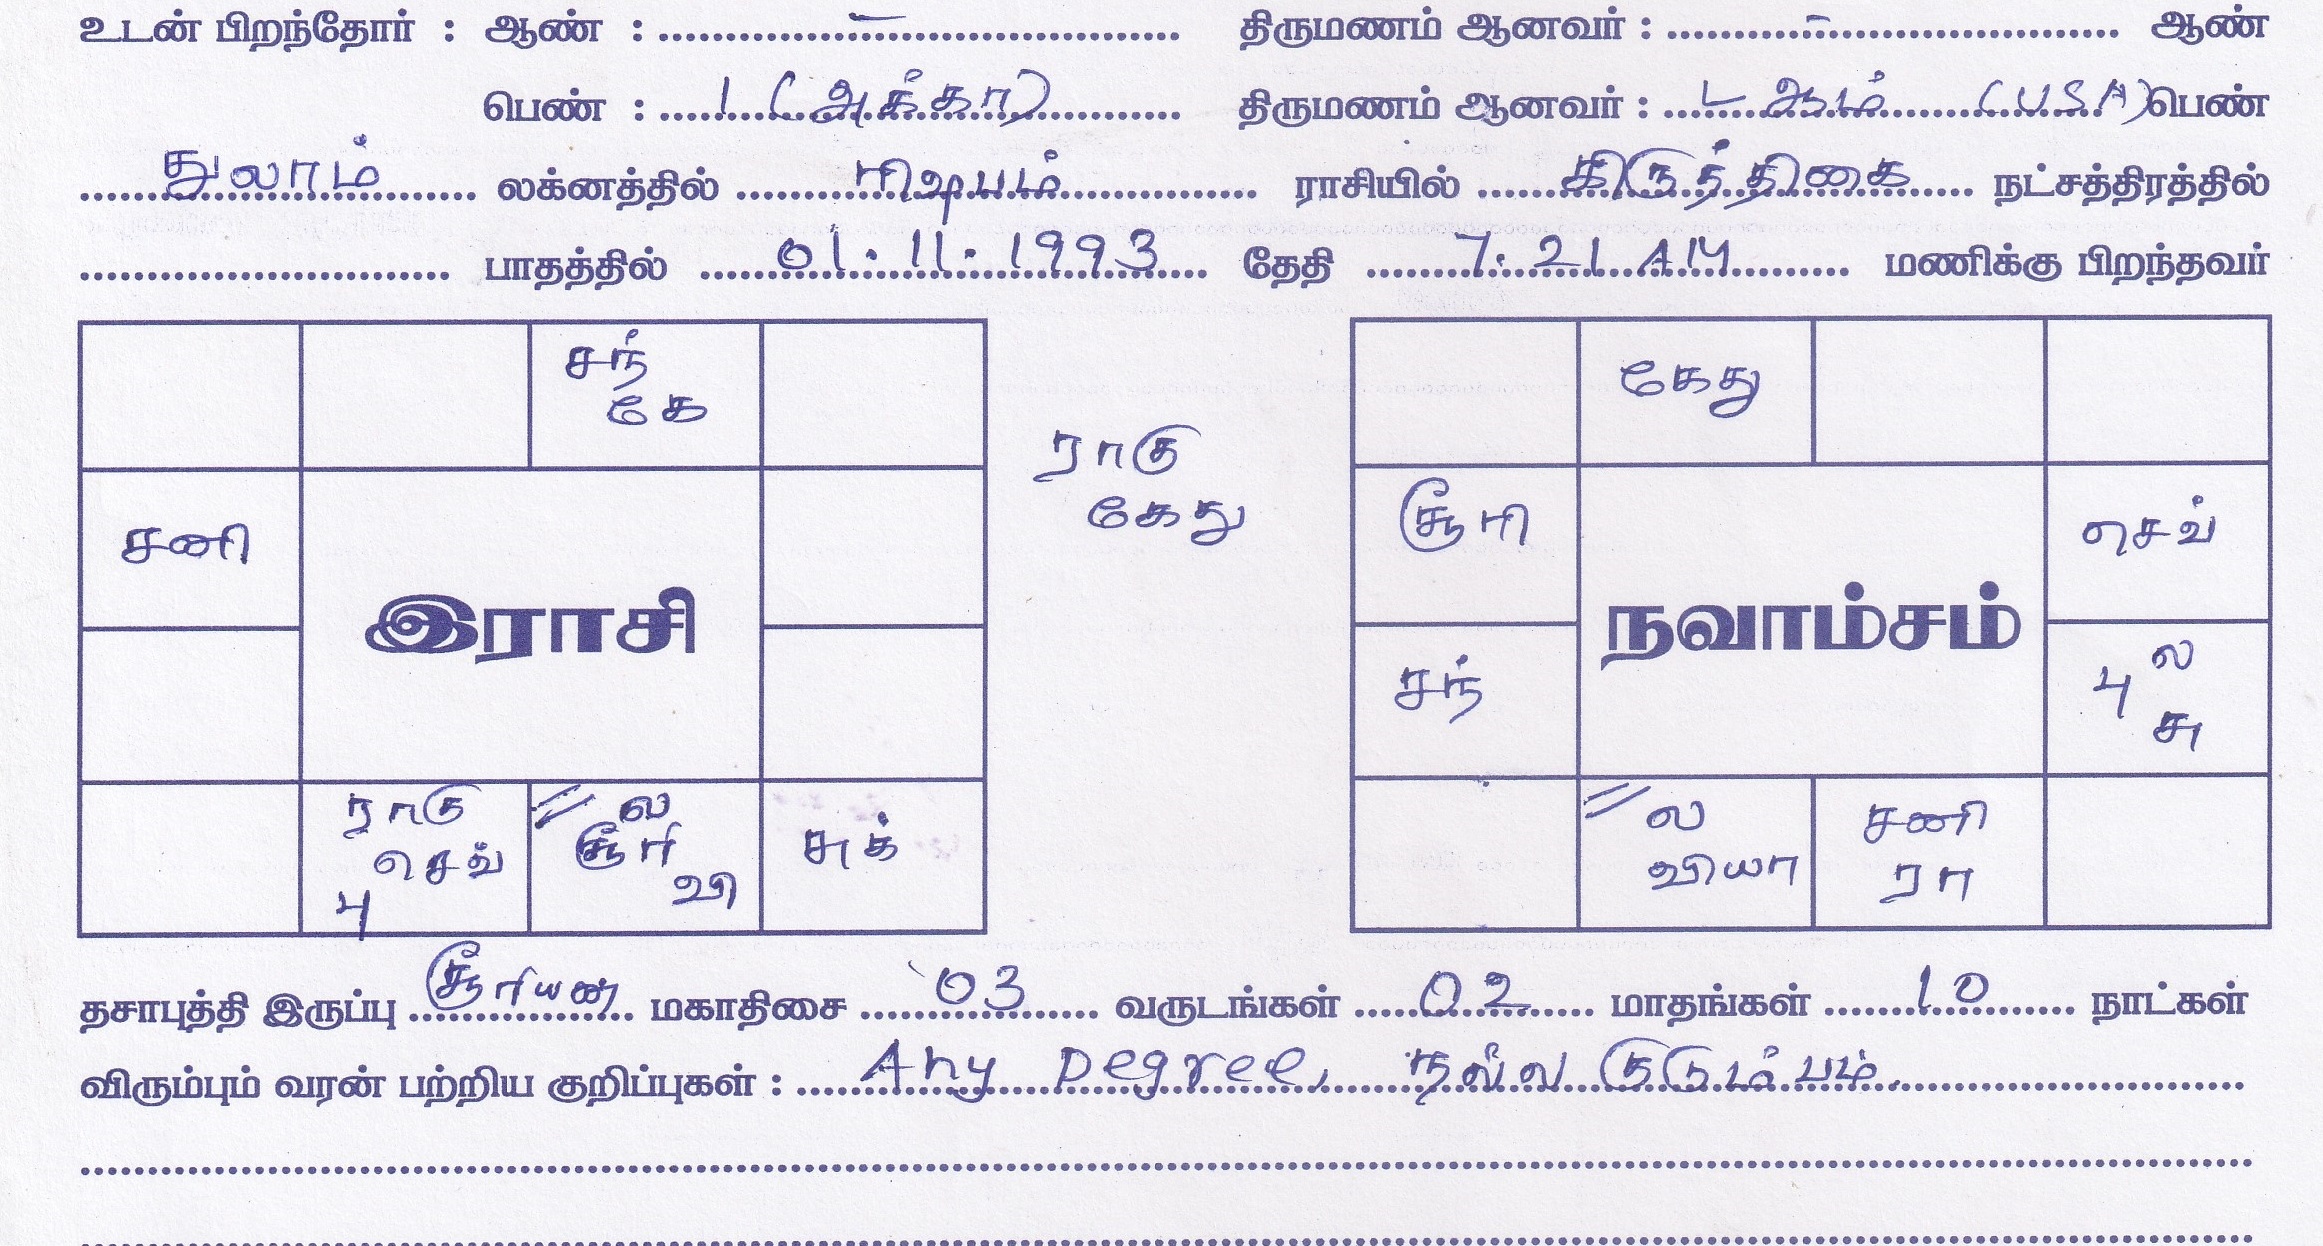 உடன் பிறந்தோர் : ஆண் : ........ – ........ திருமணம் ஆனவர் : ........ – ........ ஆண்
பெண் : ... 1 (அக்கா) ... திருமணம் ஆனவர் : ... (USA) பெண்
துலாம் லக்னத்தில் ரிஷபம் ராசியில் கிருத்திகை நட்சத்திரத்தில்
........ பாதத்தில் 01.11.1993 தேதி 7.21 AM மணிக்கு பிறந்தவர்
சந்
கே
சனி
இராசி
ராகு
செவ்
பு
ல
சூரி
வி
சுக்
ராகு
கேது
கேது
சூரி
செவ்
நவாம்சம்
சந்
ல
பு
சு
ல
வியா
சனி
ரா
தசாபுத்தி இருப்பு சூரியன் மகாதிசை 03 வருடங்கள் 02 மாதங்கள் 10 நாட்கள்
விரும்பும் வரன் பற்றிய குறிப்புகள் : Any Degree, நல்ல குடும்பம்.